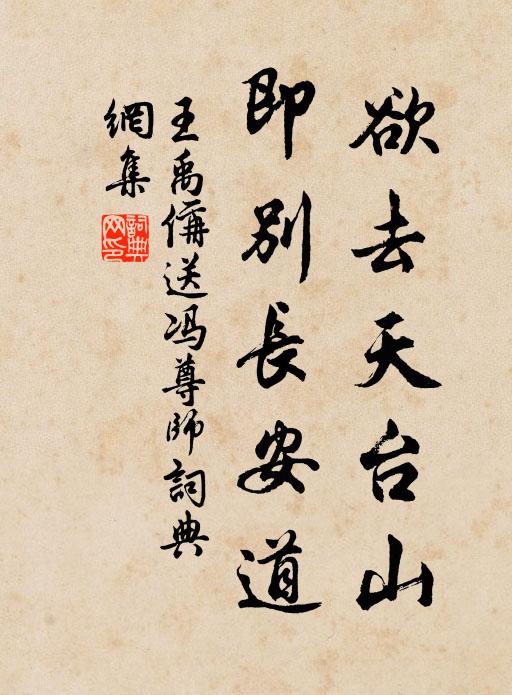 欲去天台山
即別長安道
王禹偁送冯尊師詞典
網集
詞典
网印